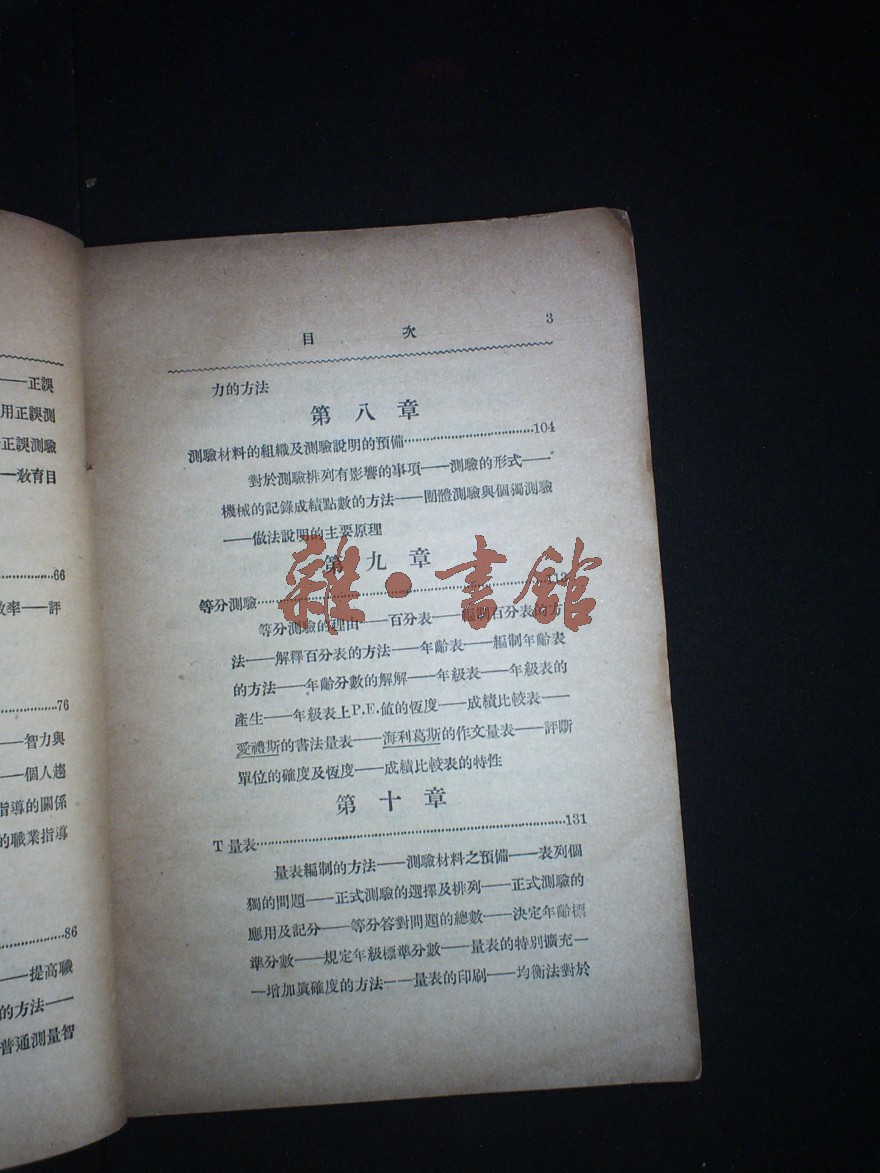 ——正誤
用正誤測
正誤測驗
——敎育目
66
效率——評
76
——智力與
——個人趨
指導的關係
的職業指導
86
——提高職
的方法——
普通測量智
目 次 3
力的方法
第八章
測驗材料的組織及測驗說明的預備 104
對於測驗排列有影響的事項——測驗的形式——
機械的記錄成績點數的方法——團體測驗與個獨測驗
——做法說明的主要原理
第九章
等分測驗 113
等分測驗的理由——百分表——編制百分表的方
法——解釋百分表的方法——年齡表——編制年齡表
的方法——年齡分數的解解——年級表——年級表的
產生——年級表上P.E.値的恆度——成績比較表——
愛禮斯的書法量表——海利葛斯的作文量表——評斷
單位的確度及恆度——成績比較表的特性
第十章
T量表 131
量表編制的方法——測驗材料之預備——表列個
獨的問題——正式測驗的選擇及排列——正式測驗的
應用及記分——等分答對問題的總數——決定年齡標
準分數——規定年級標準分數——量表的特別擴充—
—增加眞確度的方法——量表的印刷——均衡法對於
雜·書館